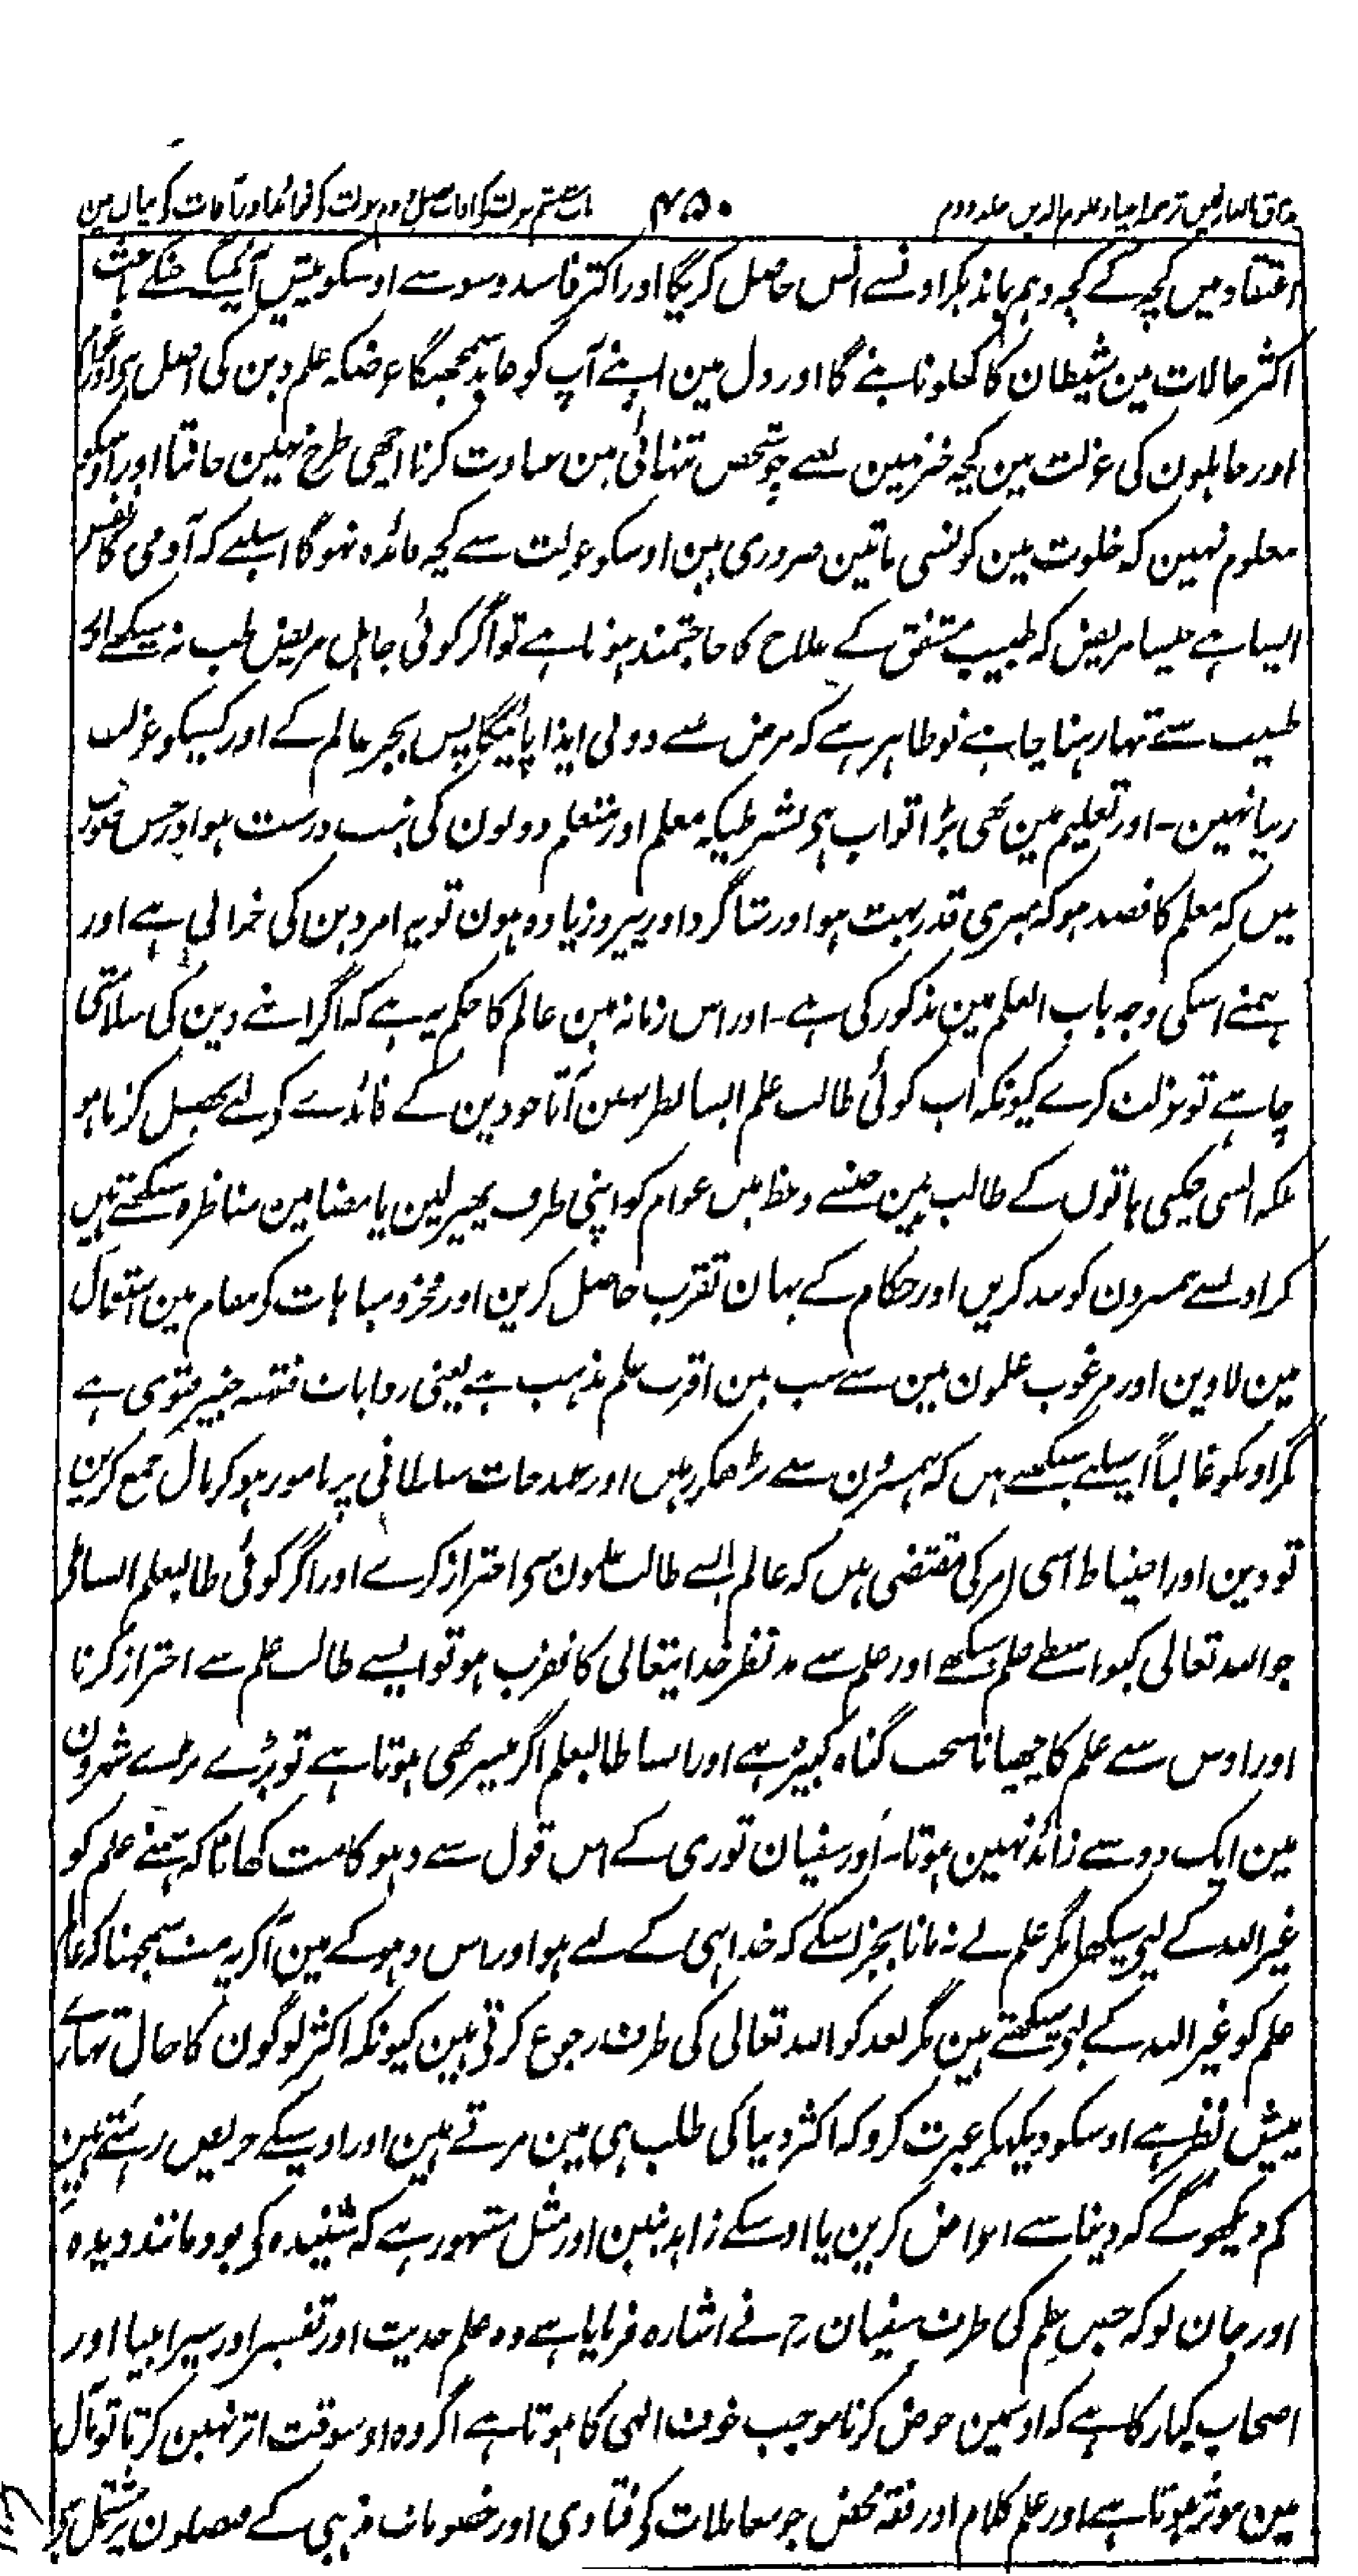 مذاق العارفین ترجمہ احیاء علوم الدین جلد دوم
۴۵۰
باب ششم عزلت کو آداب فصل دوم عزلت کو فوائد اور آفات کو بیان مین
اعتقاد میں کچہ کے کچہ وہم باندہکر اونسے انس حاصل کریگا اور اکثر فاسد وسوسے اوسکو پیش آئینگے جنکے باعث
اکثر حالات مین شیطان کا کھلونا بنے گا اور دل مین اپنے آپ کو عابد سمجھیگا غرضکہ علم دین کی اصل ہی اور عوام
اور جاہلون کی عزلت مین کچھ خیر نہین لیے جو شخص تنہائی مین عبادت کرنا اچھی طرح نہین جانتا اور اوسکو
معلوم نہین کہ خلوت مین کونسی باتین ضروری ہین اوسکو عزلت سے کچھ فائدہ نہوگا اسلیے کہ آدمی کا نفس
ایسا ہے جیسا مریض کہ طبیب مشفق کے علاج کا حاجتمند ہوتا ہے تو اگر کوئی جاہل مریض طب نہ سیکھے اور
طبیب سے تنہا رہنا چاہے تو ظاہر ہے کہ مرض سے دونی ایذا پائیگا پس بجز عالم کے اور کسیکو عزلت
زیبا نہین۔ اور تعلیم مین بھی بڑا ثواب ہی بشرطیکہ معلم اور متعلم دونون کی نیت درست ہو اور جس صورت
میں کہ معلم کا قصد ہو کہ میری قدر بہت ہو اور شاگرد اور پیرو زیادہ ہون تو یہ امر دین کی خرابی ہے اور
ہمنے اسکی وجہ باب العلم مین مذکور کی ہے۔ اور اس زمانہ مین عالم کا حکم یہ ہے کہ اگر اپنے دین کی سلامتی
چاہے تو عزلت کرے کیونکہ اب کوئی طالب علم ایسا نظر نہین آتا جو دین کے فائدے کو لیے تحصیل کرتا ہو
بلکہ ایسی چکنی باتوں کے طالب ہین جنسے وعظ میں عوام کو اپنی طرف پھیر لین یا مضامین مناظرہ سیکھتے ہیں
کہ اونسے ہمسرون کو بند کریں اور حکام کے یہان تقرب حاصل کرین اور فخر و مباہات کو مقام مین استعمال
مین لاوین اور مرغوب علمون مین سے سب مین اقرب علم مذہب ہے یعنی روایات فقہ جنپر فتوی ہے
مگر اوسکو غالباً اسیلیے سیکھتے ہیں کہ ہمسرون سے بڑھکر رہیں اور عہدجات سلطانی پر مامور ہو کر مال جمع کرین
تو دین اور احتیاط اسی امر کی مقتضی ہیں کہ عالم ایسے طالب علمون سی احتراز کرے اور اگر کوئی طالبعلم ایسا ملے
جو اللہ تعالی کیواسطے علم سیکھے اور علم سے مدنظر خدایتعالی کا تقرب ہو تو ایسے طالب علم سے احتراز کرنا
اور اوس سے علم کا چھپانا سخت گناہ کبیرہ ہے اور ایسا طالبعلم اگر میسر بھی ہوتا ہے تو بڑے بڑے شہرون
مین ایک دو سے زائد نہین ہوتا۔ اور سفیان ثوری کے اس قول سے دہوکا مت کھانا کہ ہمنے علم کو
غیر اللہ کے لیی سیکھا مگر علم نے نہ مانا بجز اسکے کہ خدا ہی کے لیے ہو اور اس دہوکے مین آکر یہ مت سمجہنا کہ عالم
علم کو غیر اللہ کے لیی سیکھتے ہین مگر بعد کو اللہ تعالی کی طرف رجوع کرتی ہین کیونکہ اکثر لوگون کا حال تمہارے
پیش نظر ہے اوسکو دیکہکر عبرت کرو کہ اکثر دنیا کی طلب ہی مین مرتے ہین اور اوسیکے حریص رہتے ہین
کم دیکھو گے کہ دنیا سے اعراض کرین یا اوسکے زاہد بنین اور مثل مشہور ہے کہ شنیدہ کی بود مانند دیدہ
اور جان لو کہ جس علم کی طرف سفیان رح نے اشارہ فرمایا ہے وہ علم حدیث اور تفسیر اور سیر انبیا اور
اصحاب کبار کا ہے کہ اوسمین خوض کرنا موجب خوف الہی کا ہوتا ہے اگر وہ اوسوقت اثر نہین کرتا تو مآل
مین موثر ہوتا ہے اور علم کلام اور فقہ محض جو معاملات کو فتاوی اور خصومات مذہبی کے فیصلون پر مشتمل ہی